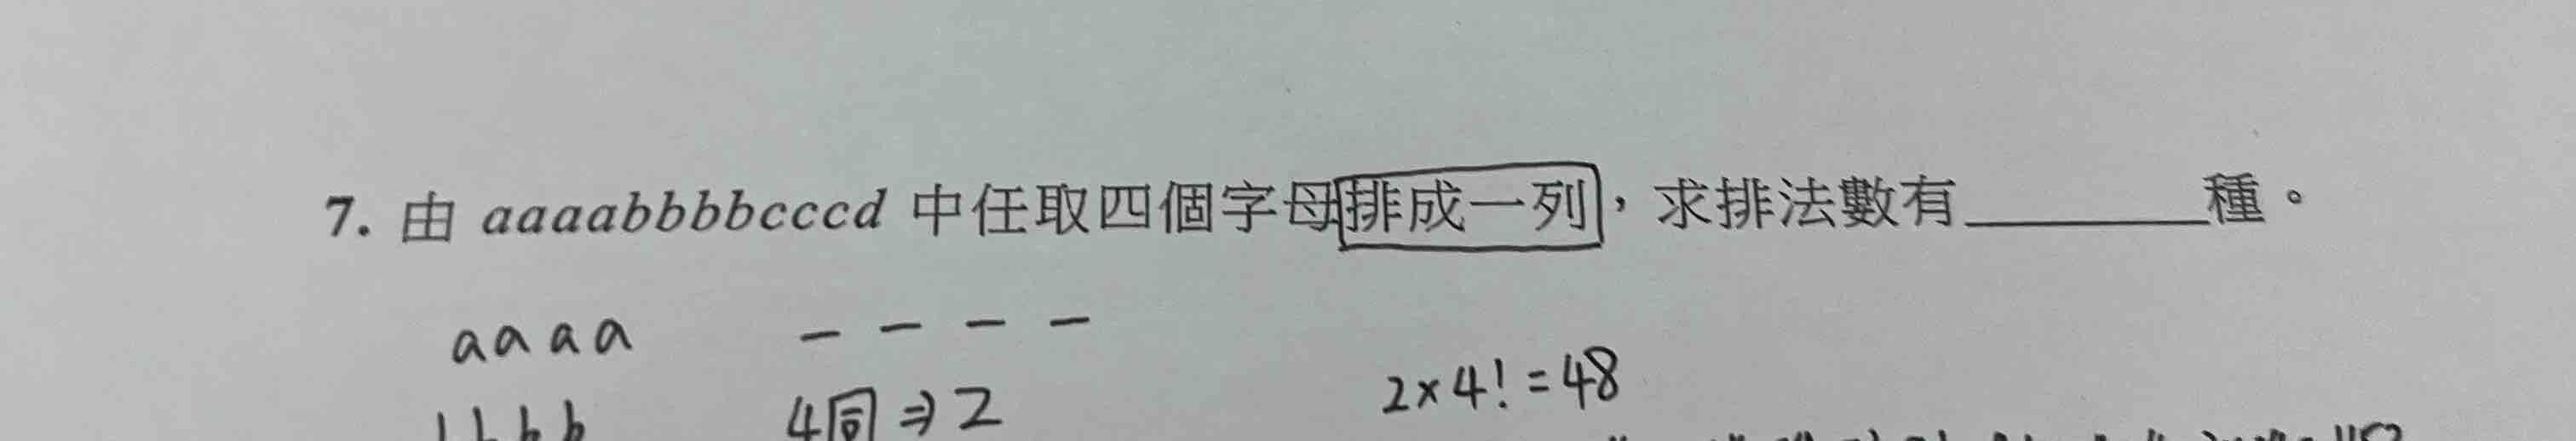 7. 由 aaaabbbbcccd 中任取四個字母排成一列，求排法數有________種。
aaaa － － － － 2×4! = 48
bbbb 4同 ⇒ 2